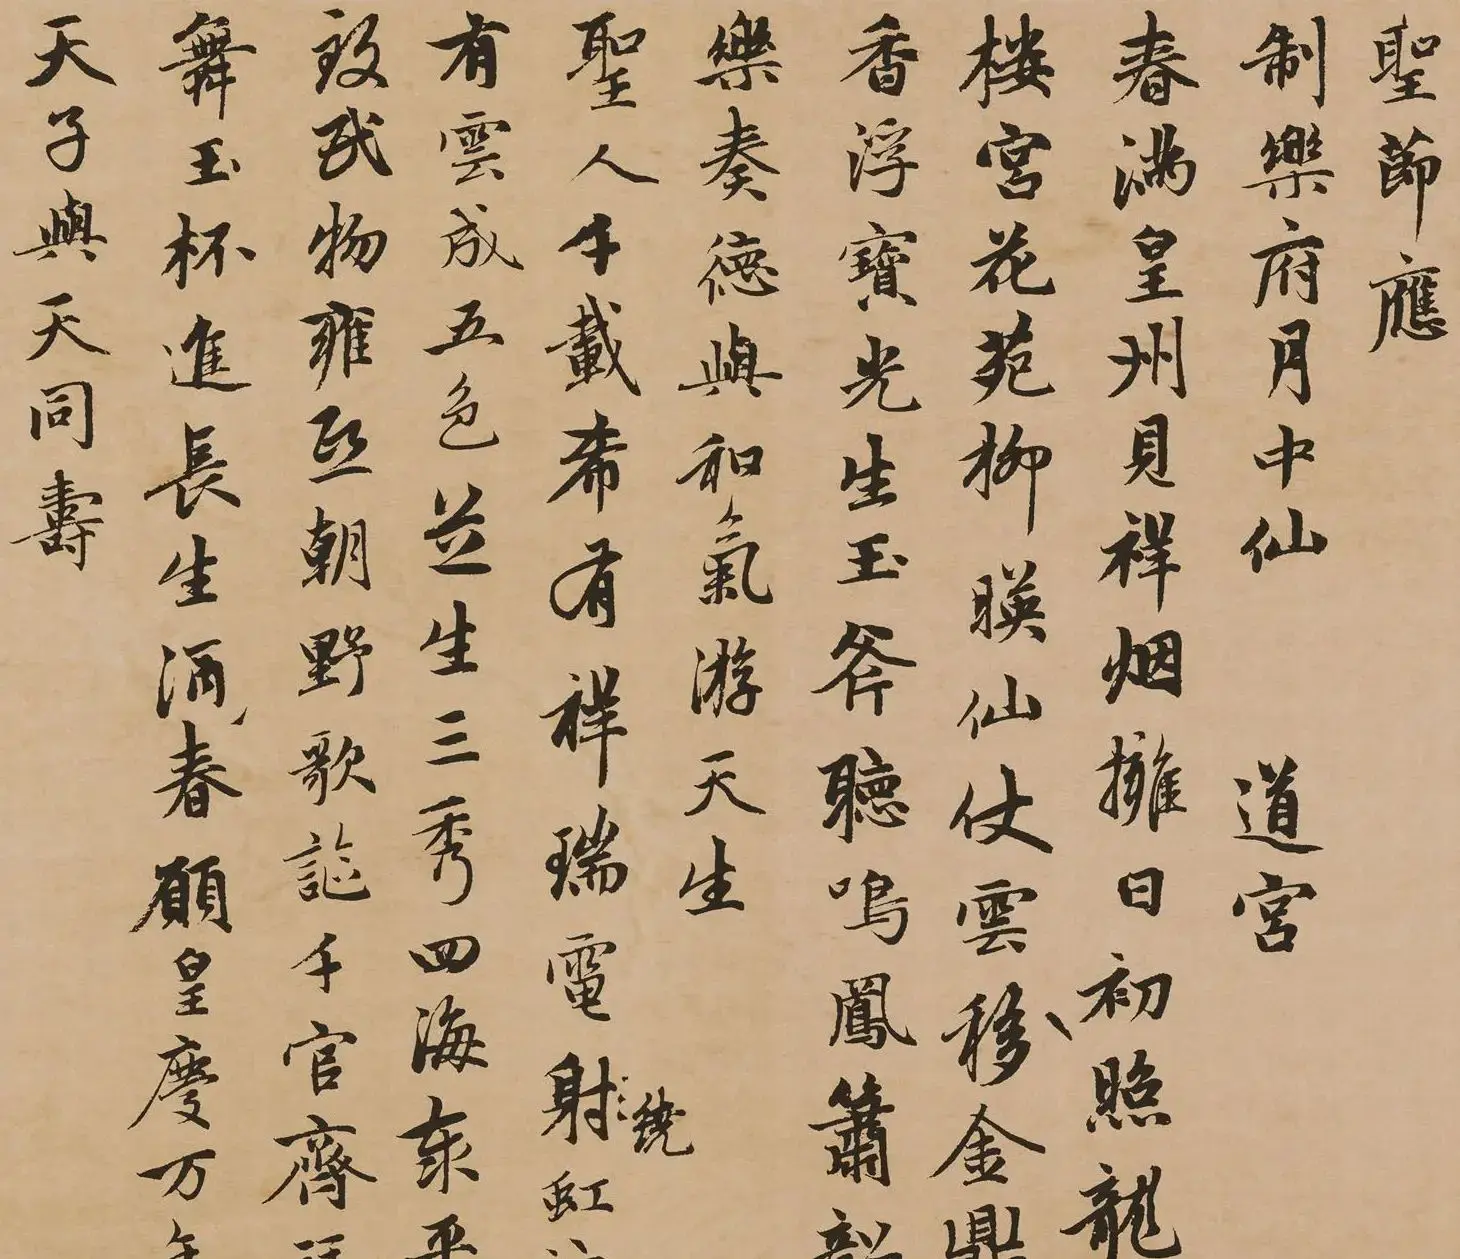 聖節應
制樂府月中仙 道宮
春滿皇州見祥烟擁日初照龍
樓宮花苑柳暎仙仗雲移金鼎
香浮寶光生玉斧聽鳴鳳簫韶
樂奏德與和氣游天生
聖人千載希有祥瑞電射虹
繞
有雲成五色並生三秀四海泰平
致民物雍熙朝野歌謳千官齊
舞玉杯進長生酒春願皇慶万年
天子與天同壽